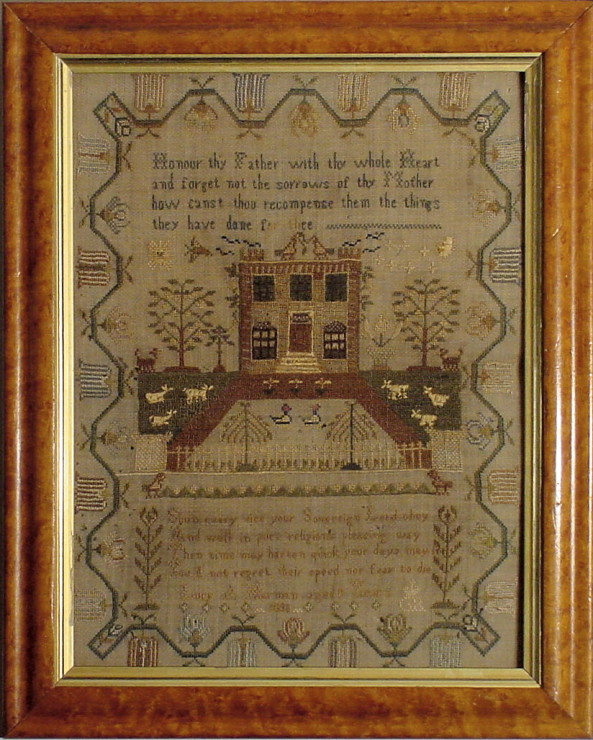 Honour thy Father with thy whole Heart
and forget not the sorrows of thy Mother
how canst thou recompense them the things
they have done for thee
every vice your Sovereign Lord obey
And walk in pure religions pleasing way
Then time may hasten quick your days may
not regret their speed nor fear to die
aged Years